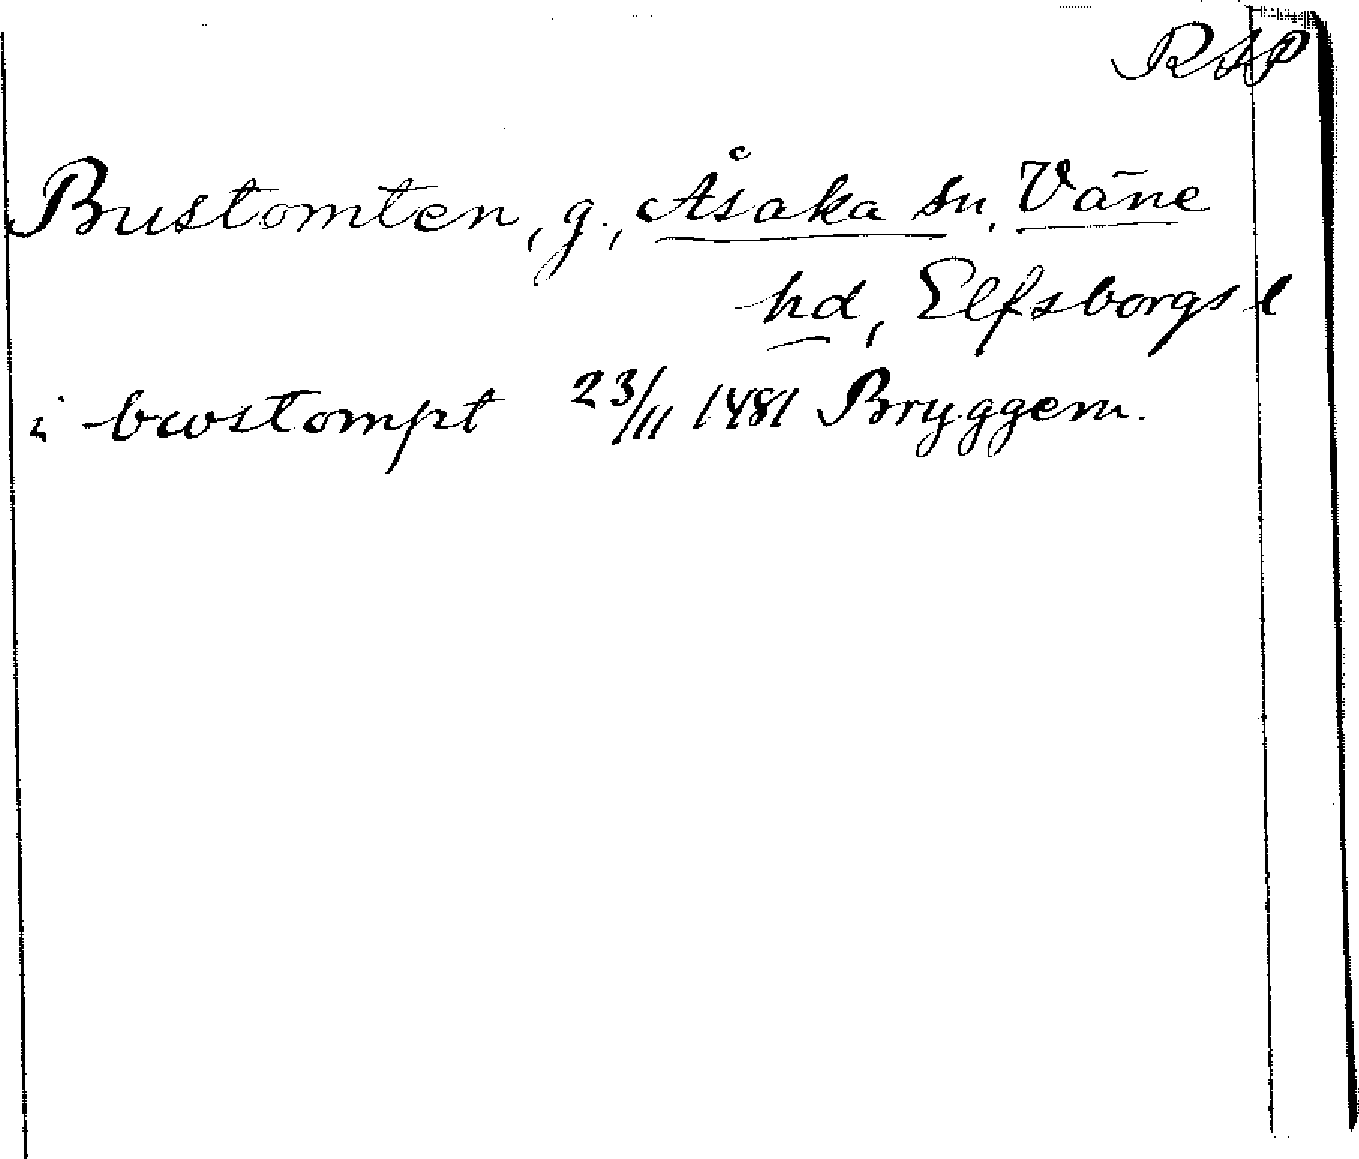 RAP
Bustomten, g., Åsaka sn, Väne
hd, Elfsborgs l
i bwstompt 23/11 1481 Bryggem.